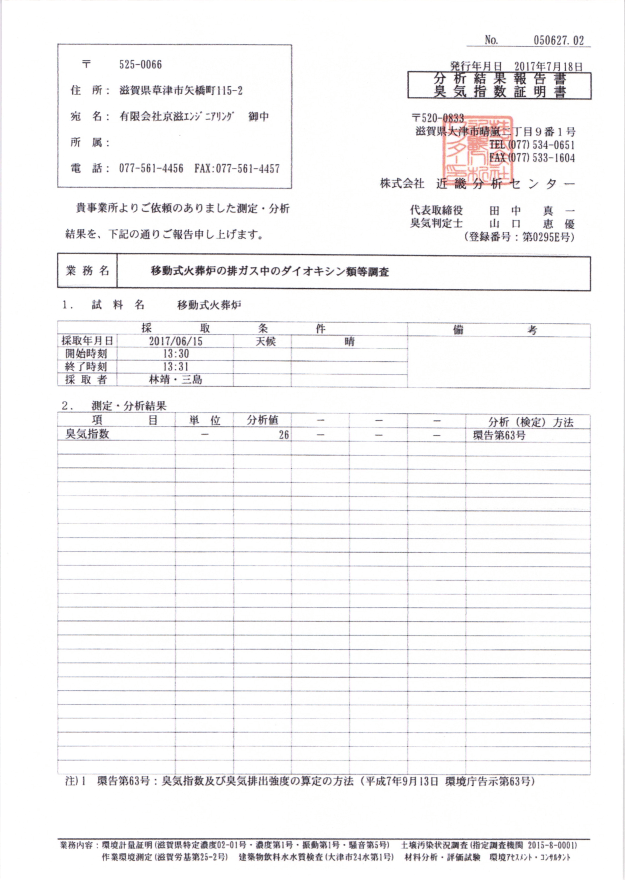 No. 050627.02
発行年月日 2017年7月18日
分析結果報告書
臭気指数証明書
〒 525-0066
住所: 滋賀県草津市矢橋町115-2
宛名: 有限会社京滋ｴﾝｼﾞﾆｱﾘﾝｸﾞ 御中
所属:
電話: 077-561-4456 FAX:077-561-4457
〒520-0833
滋賀県大津市晴嵐二丁目9番1号
TEL(077) 534-0651
FAX(077) 533-1604
株式会社 近畿分析センター
代表取締役 田中真一
臭気判定士 山口恵優
(登録番号:第0295E号)
貴事業所よりご依頼のありました測定・分析
結果を、下記の通りご報告申し上げます。
業務名 移動式火葬炉の排ガス中のダイオキシン類等調査
1. 試料名 移動式火葬炉
採取条件 備考
採取年月日 2017/06/15 天候 晴
開始時刻 13:30
終了時刻 13:31
採取者 林靖・三島
2. 測定・分析結果
項目 単位 分析値 － － － 分析(検定)方法
臭気指数 － 26 － － － 環告第63号
注)1 環告第63号:臭気指数及び臭気排出強度の算定の方法(平成7年9月13日 環境庁告示第63号)
業務内容:環境計量証明(滋賀県特定濃度02-01号・濃度第1号・振動第1号・騒音第5号) 土壌汚染状況調査(指定調査機関 2015-8-0001)
作業環境測定(滋賀労基第25-2号) 建築物飲料水水質検査(大津市24水第1号) 材料分析・評価試験 環境ｱｾｽﾒﾝﾄ・ｺﾝｻﾙﾀﾝﾄ